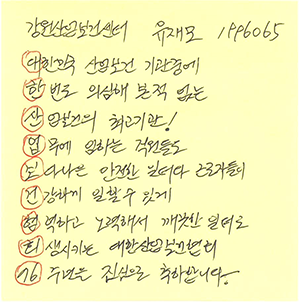 강원산업보건센터 유재모 1996065
대한민국 산업보건 기관중에
한번도 의심해 본적 없는
산업보건의 최고기관!
업무에 임하는 직원들도
보다 나은 안전한 일터다 근로자들이
건강하게 일할수 있게
협력하고 노력해서 깨끗한 일터로
회생시키는 대한산업보건협회
주년은 진심으로 축하합니다.